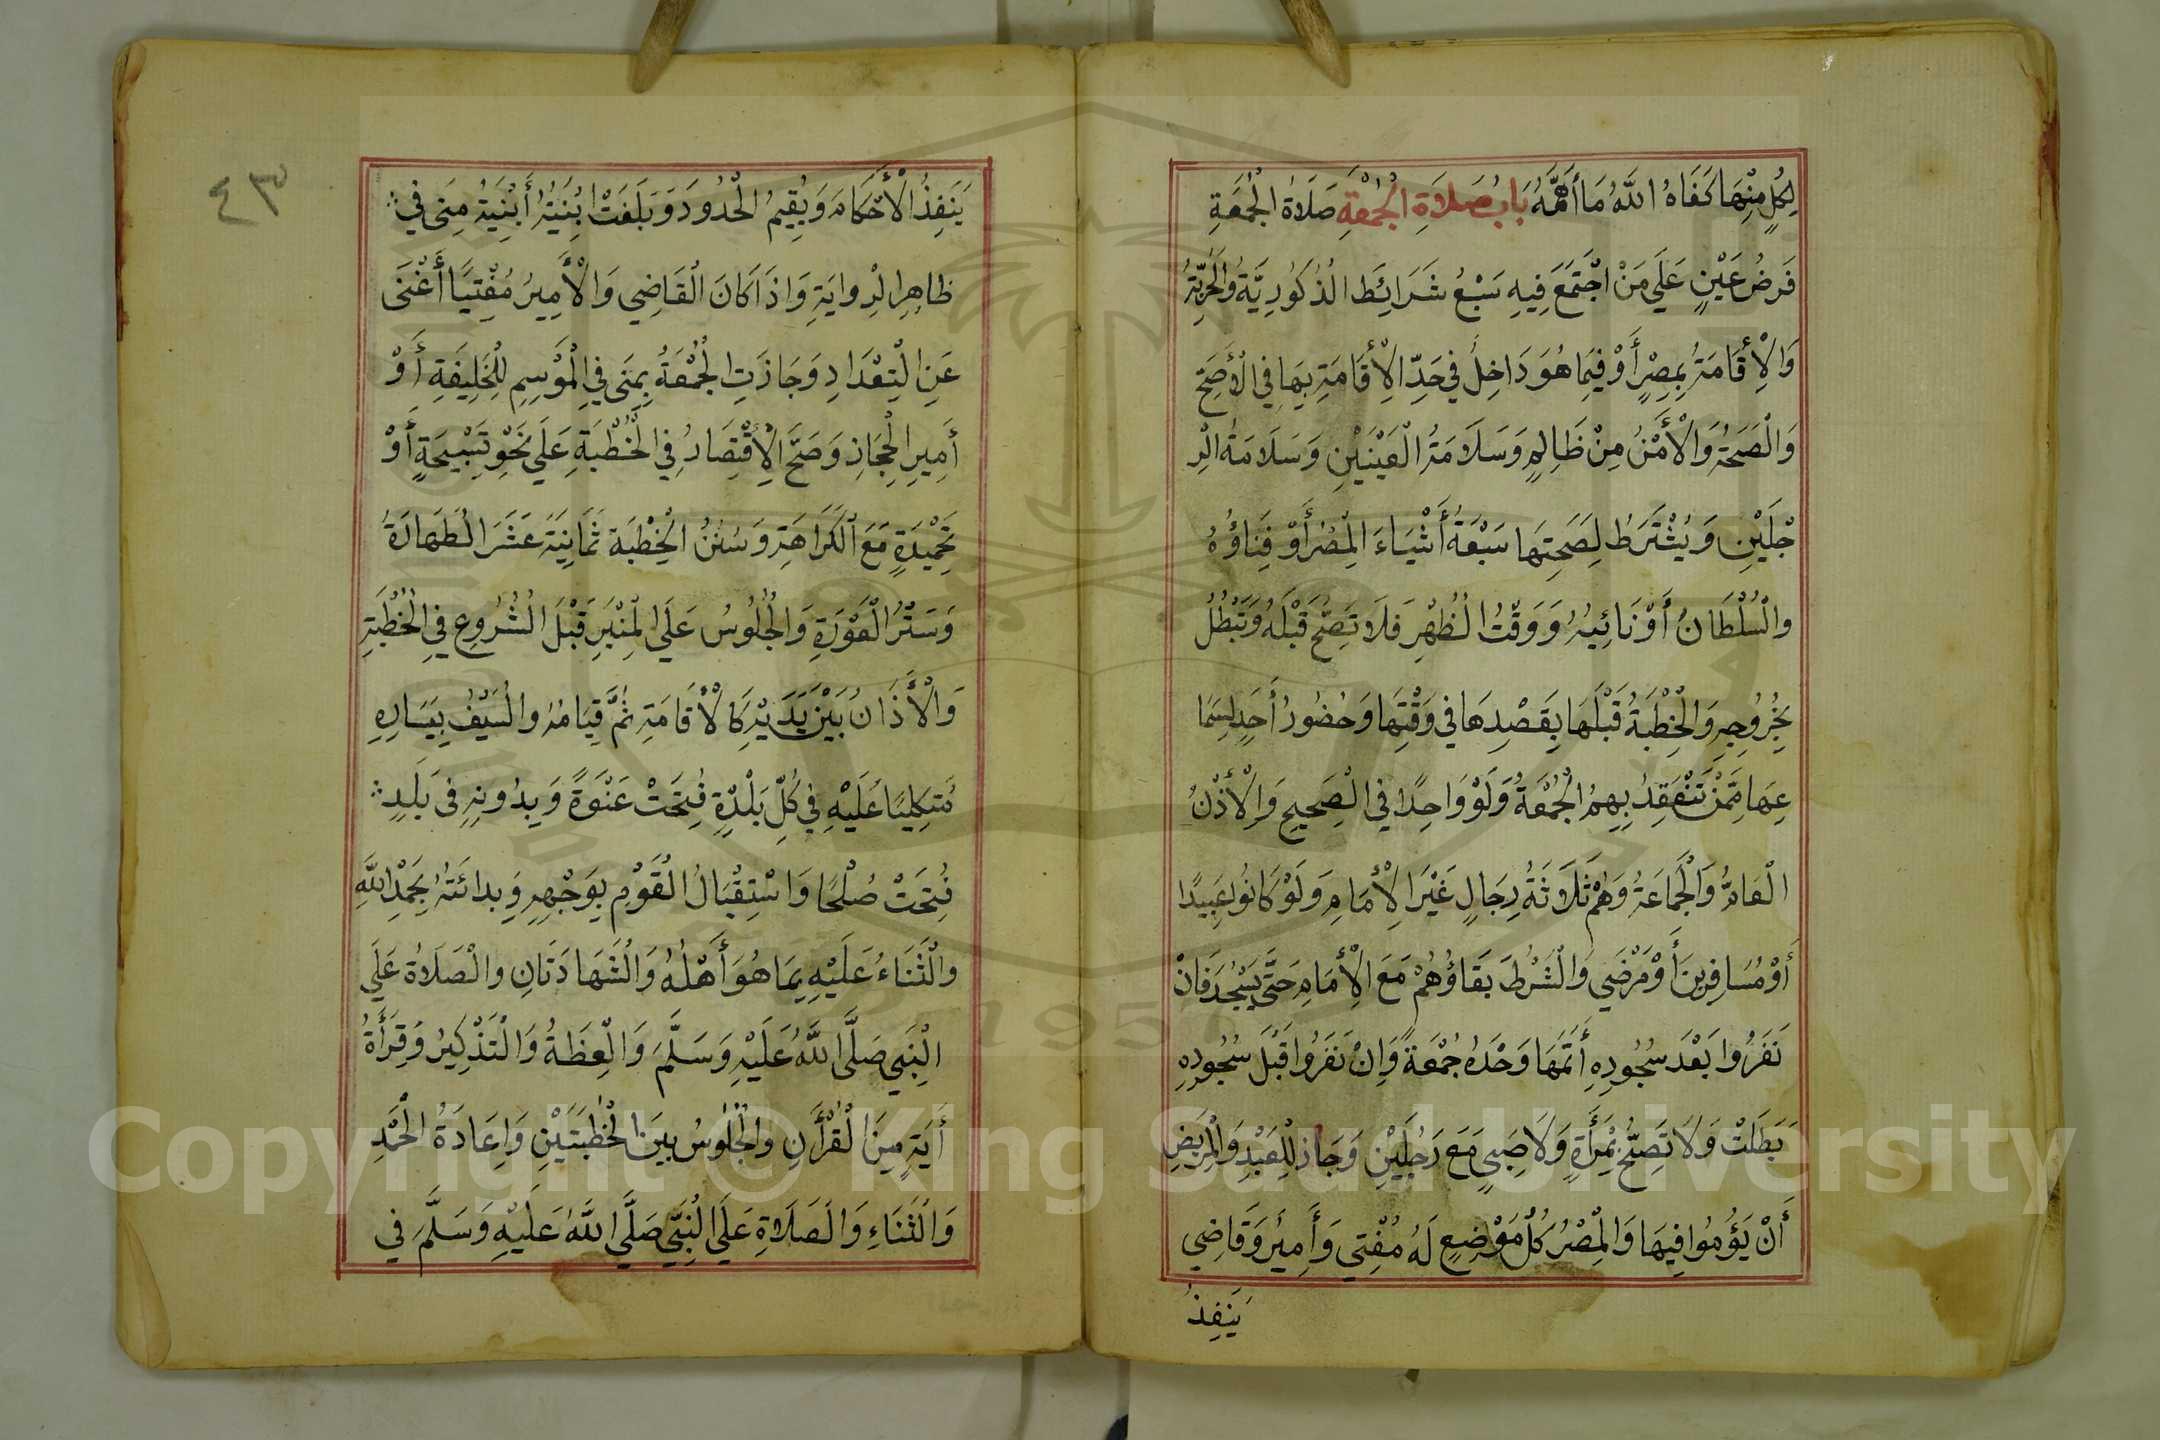 لِكُلٍ مِنْهَا كَفَاهُ اللَّهُ مَا أَهَمَّهُ بَابُ صَلَاةِ الْجُمْعَةِ صَلَاةُ الْجُمَعَةِ
فَرضُ عَيْنٍ عَلَي مَنْ اجْتَمَعَ فِيهِ سَبْعُ شَرَائِطَ الذُكُورِيَّةُ وَالْحُرِيَّةُ
وَالْأِقَامَةُ بِمِصْرٍ أَوْ فِيمَا هُوَ دَاخِلُ فِي حَدِّ الْأِقَامَةِ بِهَا فِي الْأَصَحِّ
وَالْصَحَةُ وَالْأَمْنُ مِنْ ظَالِمٍ وَسَلَامَةُ الْعَيْنَيْنِ وَسَلَامَةُ الْرِ
جْلَيْنِ وَيُشْتَرَطُ لِصَحَتِهَا سَبْعَةُ أَشْيَاءَ الْمِصْرُ أَوْ فِنَاؤُهُ
وَالْسُلْطَانُ أَوْ نَائِبُهُ وَوَقْتُ الْظُهْرِ فَلَا تَصِحُّ قَبْلَهُ وَتَبْطُلُ
بِخُرُوجِهِ وَالْخِطْبَةُ قَبْلَهَا بِقَصْدِهَا فِي وَقْتِهَا وَحُضُورُ أَحَدٍ لِسَمَا
عِهَا مِمَّنْ تَنْعَقِدُ بِهِمُ الْجُمْعَةُ وَلَوْ وَاحِدًا فِي الْصَحِيحِ وَالْأِذْنُ
الْعَامُّ وَالْجَمَاعَةُ وَهُمْ ثَلَاثَةُ رِجَالٍ غَيْرَ الْأِمَامِ وَلَوْ كَانُو عَبِيدًا
أَوْ مُسَافِرِينَ أَوْ مَرْضَي وَالْشَرْطَ بَقَاؤُهُمْ مَعَ الْأِمَامِ حَتَّي يَسْجُدَ فَانْ
نَفَرُوا بَعْدَ سُجُودِهِ أَتَمَّهَا وَحْدَهُ جُمْعَةً وَانْ نَفَرُوا قَبْلَ سُجُودِهِ
بَطَلَتْ وَلَا تَصِحُّ بِمْرَأَةٍ وَلَا صَبِيٍ مَعَ رَجُلَيْنِ وَجَازَ لِلْعَبْدِ وَالْمَرِيضِ
أَنْ يَؤُمُوا فِيهَا وَالْمِصْرُ كُلُ مَوْضِعٍ لَهُ مُفْتِي وَأَمِيرُ وَقَاضِي
يَنفِذُ
٤٣
يَنَفِذُ الْأَحْكَامَ وَيُقِيمُ الْحُدُودَ وَبَلَغَتْ ابُنِيَتُهُ أَبْنِيَةَ مِنَى فِي
ظَاهِرِ الْرِوايَةِ وَاذَا كَانَ الْقَاضِي وَالْأَمِيرُ مُفْتِيًا أَغْنَى
عَنِ الْتِعْدَادِ وَجَازَتِ الْجُمْعَةُ بِمِنَى فِي الْمَوْسِمِ لِلْخَلِيفَةِ أَوْ
أَمِيرِ الْحِجَازِ وَصَحَّ الْأِقْتِصَارُ فِي الْخُطْبَةِ عَلَي نَحْوِ تَسْبِيحَةٍ أَوْ
تَحْمِيْدَةٍ مَعَ الْكَرَاهَةِ وَسُنَنُ الْخِطْبَة ثَمَانِيَةَ عَشَرَ الْطَهَارَةُ
وَسَتْرُ الْعَوْرَةِ وَالْجُلُوسُ عَلَي الْمِنْبَرِ قَبْلَ الْشُرُوعِ فِي الْخُطْبَةِ
وَالْأَذَانُ بَيْنَ يَدَيْهِ كَالْأِقَامَةِ ثُمَّ قِيَامُهُ والْسَيْفُ بِيَسَارِهِ
مُتَكِئًا عَلَيْهِ فِي كُلِّ بَلْدَةٍ فُتِحَتْ عَنْوَةً وَبِدُونِهِ فِي بَلَدٍ
فُتِحَتْ صُلْحًا وَاسْتِقْبَالُ الْقَوْمِ بِوَجْهِهِ وَبِدائَتُهُ بِحَمْدِ اللَّهِ
والْثَنَاءُ عَلَيْهِ بِمَا هُوَ أَهْلُهُ وَالْشَهَادَتَانِ والْصَلَاةُ عَلَي
الْنِبَي صَلَّي اللَّهُ عَلَيْهِ وَسَلَّمَ وَالْعِظَةُ وَالْتَذْكِيرُ وَقِرَأَةُ
أَيَةٍ مِنَ الْقُرْأَنِ وَالْجُلُوسُ بَيْنَ الْخُطْبَتَيْنِ وَاعَادَةُ الْحَمْدِ
وَالْثَنَاءِ وَالْصَلَاةِ عَلَي الْنَبِّي صَلَّي اللَّهُ عَلَيْهِ وَسَلَّمَ فِي
Copyright © King Saud University